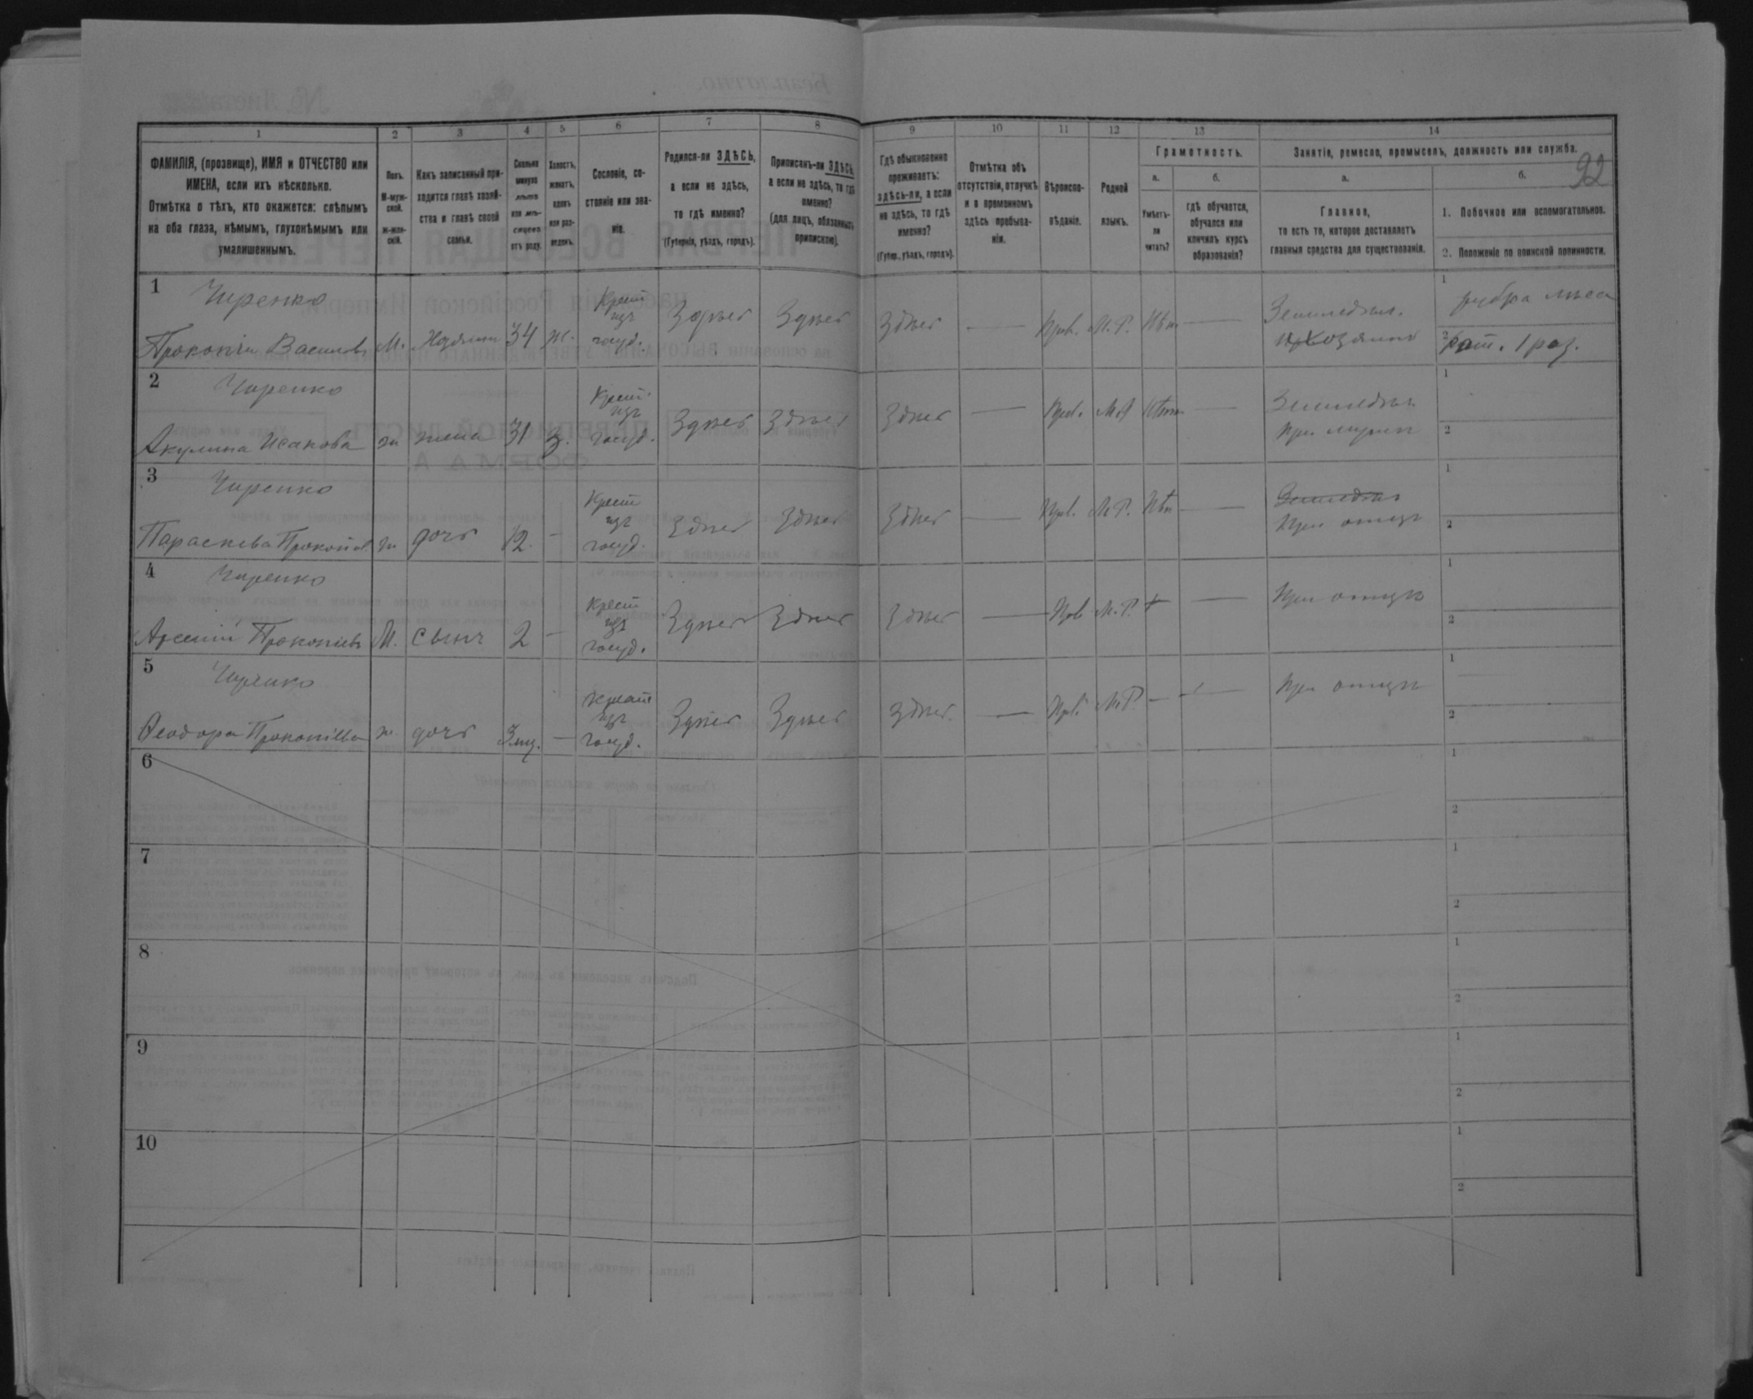 92
1 2 3 4 5 6 7 8 9 10 11 12 13 14
ФАМИЛІЯ, (прозвище), ИМЯ и ОТЧЕСТВО или
ИМЕНА, если ихъ нѣсколько.
Отмѣтка о тѣхъ, кто окажется: слѣпымъ
на оба глаза, нѣмымъ, глухонѣмымъ или
умалишеннымъ.
Полъ.
М-муж-
ской.
ж-жен-
скій.
Какъ записанный при-
ходится главѣ хозяй-
ства и главѣ своей
семьи.
Сколько
минуло
лѣтъ
или мѣ-
сяцевъ
отъ роду.
Холостъ,
женатъ,
вдовъ
или раз-
веденъ.
Сословіе, со-
стояніе или зва-
ніе.
Родился-ли ЗДѢСЬ,
а если не здѣсь,
то гдѣ именно?
(Губернія, уѣздъ, городъ).
Приписанъ-ли ЗДѢСЬ,
а если не здѣсь, то гдѣ
именно?
(для лицъ, обязанныхъ
припискою).
Гдѣ обыкновенно
проживаетъ:
здѣсь-ли, а если
не здѣсь, то гдѣ
именно?
(Губер., уѣздъ, городъ).
Отмѣтка объ
отсутствіи, отлучкѣ
и о временномъ
здѣсь пребыва-
ніи.
Вѣроиспо-
вѣданіе.
Родной
языкъ.
Грамотность.
а.
Умѣетъ-
ли
читать?
б.
гдѣ обучается,
обучался или
кончилъ курсъ
образованія?
Занятіе, ремесло, промыселъ, должность или служба.
а.
Главное,
то есть то, которое доставляетъ
главныя средства для существованія.
б.
1. Побочное или вспомогательное.
2. Положеніе по воинской повинности.
1 Чиренко
Прокопій Васильевъ М. Хозяинъ 34 ж. Крест. изъ госуд. Здѣсь Здѣсь Здѣсь — Прав. М. Р. Нѣт — Земледѣл. хозяинъ
1 рубка лѣса
2 рат. 1 раз.
2 Чиренко
Акулина Исакова ж жена 31 з. Крест. изъ госуд. Здѣсь Здѣсь Здѣсь — Прав. М.Р Нѣт — Земледѣл. При мужѣ
1
2
3 Чиренко
Параскева Прокопіев ж дочь 12. - Крест изъ госуд. Здѣсь Здѣсь Здѣсь — Прав. М. Р. Нѣт — Земледѣл При отцѣ
1
2
4 Чиренко
Арсеній Прокопіевъ М. сынъ 2 - Крест изъ госуд. Здѣсь Здѣсь Здѣсь — Прв М. Р. — При отцѣ
1
2
5 Чиренко
Феодора Прокопіева ж. дочь 3 мц. - Крест изъ госуд. Здѣсь Здѣсь Здѣсь. — Прв. М.Р — — При отцѣ
1
2
6
1
2
7
1
2
8
1
2
9
1
2
10
1
2